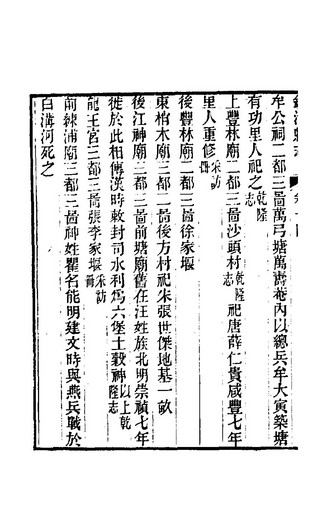 牟公祠二都三啚萬弓塘萬壽菴內以總兵牟大寅築塘
有功里人祀之乾隆志
上豐林廟二都三啚沙頭村乾隆志祀唐薛仁貴咸豐七年
里人重修采訪冊
後豐林廟二都三啚徐家堰
東梢木廟三都二啚後方村祀朱張世傑地基一畝
後江神廟三都三啚前塘廟舊在汪姓族北明崇禎七年
徙於此相傳漢時敕封司水利爲六堡土穀神以上乾隆志
龍王宮三都三啚張李家堰采訪冊
前練浦廟三都三啚神姓瞿名能明建文時與燕兵戰於
白溝河死之